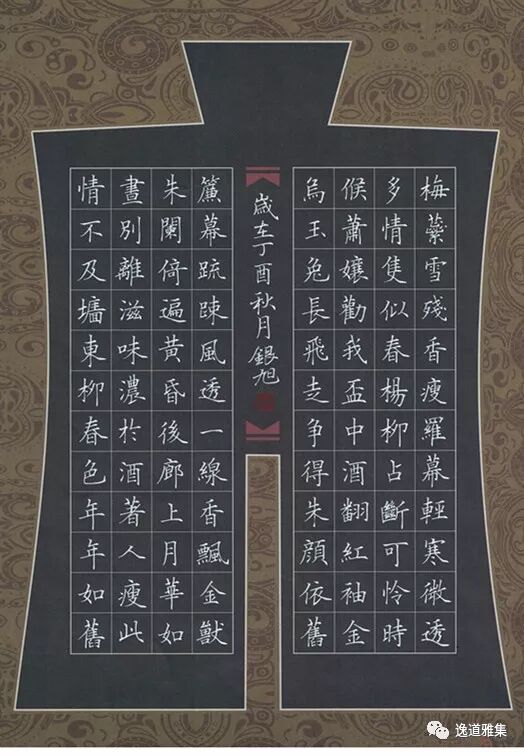 梅蘂雪殘香瘦羅幕輕寒微透
多情隻似春楊柳占斷可怜時
候蕭孃勸我盃中酒翻紅袖金
烏玉兔長飛走争得朱顔依舊
歲在丁酉秋月銀旭
簾幕疏踈風透一線香飄金獸
朱闌倚遍黃昏後廊上月華如
晝別離滋味濃於酒著人瘦此
情不及墻東柳春色年年如舊
逸道雅集